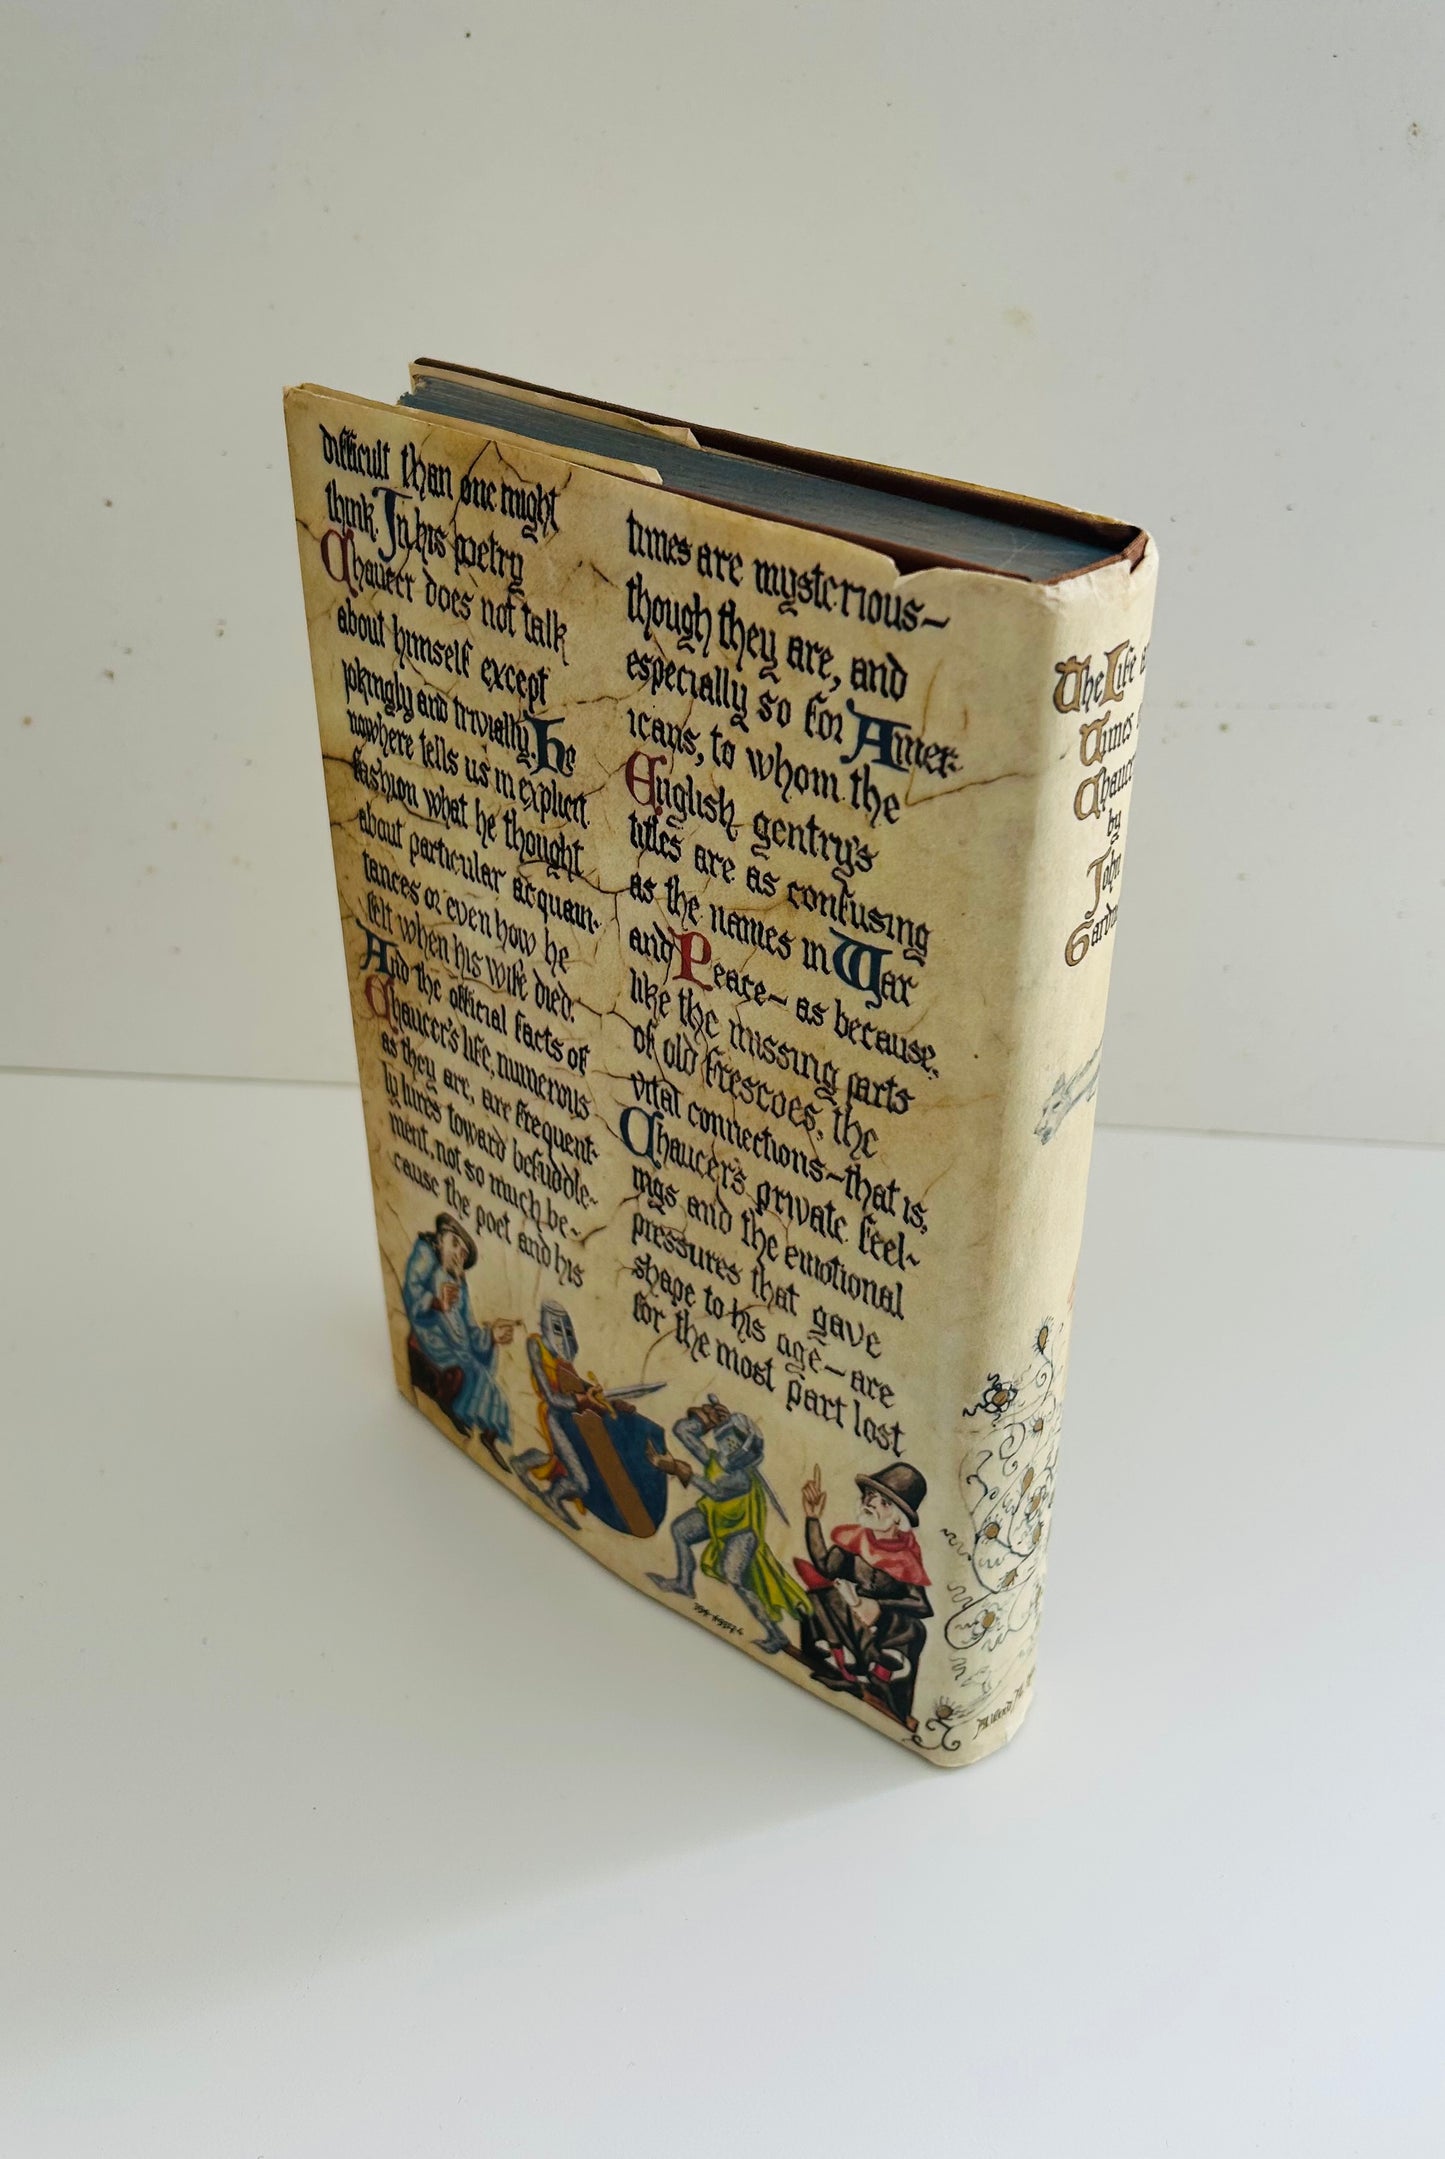 difficult than one might
think. In his poetry
Chaucer does not talk
about himself except
jokingly and trivially. He
nowhere tells us in explicit
fashion what he thought
about particular acquain-
tances or even how he
felt when his wife died.
And the official facts of
Chaucer's life, numerous
as they are, are frequent-
ly lures toward befuddle-
ment, not so much be-
cause the poet and his
times are mysterious—
though they are, and
especially so for Amer-
icans, to whom the
English gentry's
titles are as confusing
as the names in War
and Peace— as because,
like the missing parts
of old frescoes, the
vital connections—that is,
Chaucer's private feel-
ings and the emotional
pressures that gave
shape to his age—are
for the most part lost
The Life
Times
Chaucer
by
John
Gardn